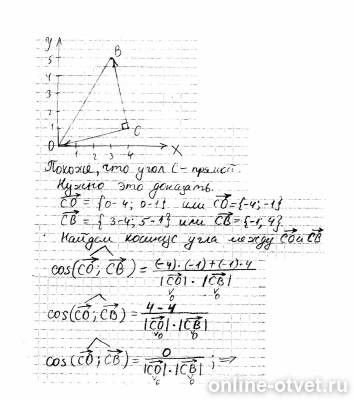 y
5
4
3
2
1
0
1 2 3 4
B
C
X
Похоже, что угол С - прямой.
Нужно это доказать.
CO = {0-4; 0-1} или CO = {-4; -1}
CB = {3-4; 5-1} или CB = {-1; 4}
Найдем косинус угла между CO и CB
cos(CO; CB) = (-4)·(-1)+(-1)·4 / |CO|·|CB|
cos(CO; CB) = 4-4 / |CO|·|CB|
cos(CO; CB) = 0 / |CO|·|CB| ; ⇒
online-otvet.ru